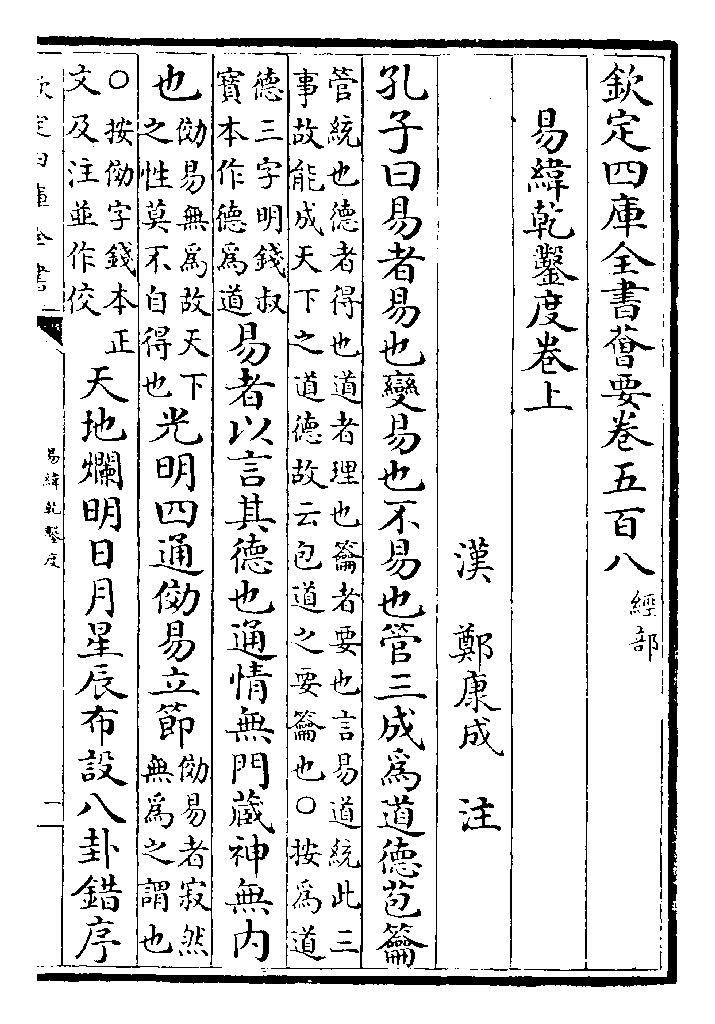 欽定四庫全書薈要卷五百八 經部
易緯乾鑿度卷上
漢 鄭康成 注
孔子曰易者易也變易也不易也管三成爲道德苞籥
管統也德者得也道者理也籥者要也言易道統此三
事故能成天下之道德故云包道之要籥也○按爲道
德三字明錢叔
寶本作德爲道
易者以言其德也通情無門藏神無内
也
俲易無爲故天下
之性莫不自得也
光明四通俲易立節
俲易者寂然
無爲之謂也
○按俲字錢本正
文及注並作佼
天地爛明日月星辰布設八卦錯序
欽定四庫全書
易緯乾鑿度
一